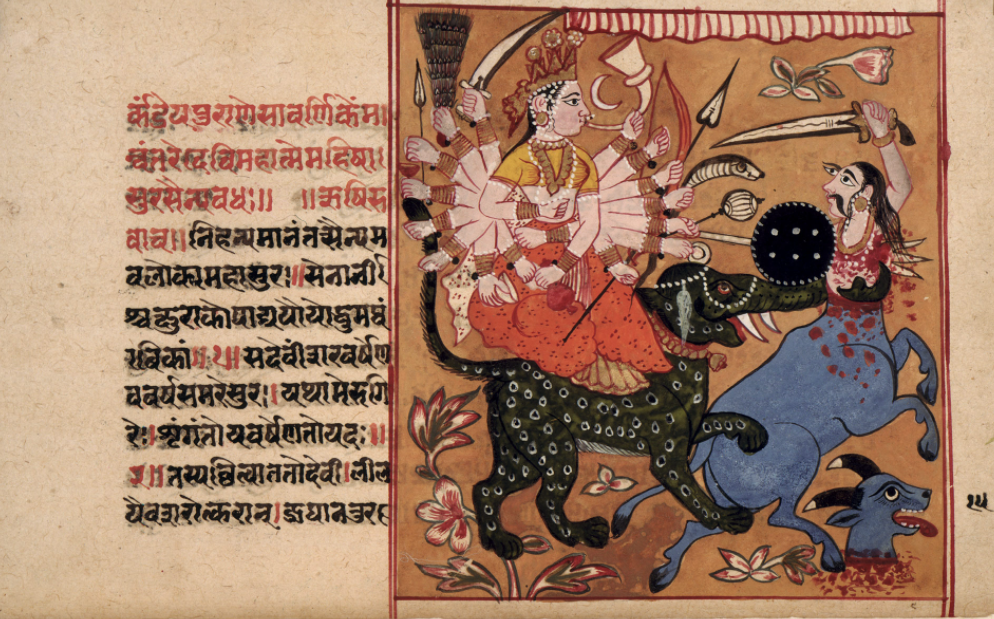 कंडेयपुराणेसावर्णिकेमा
देविमहात्मेमहिषा
सुरसेनावधः॥ ॥ऋषिरु
वाच॥निहन्यमानंतत्सैन्यम
वलोक्यमहासुरः॥सेनानी
श्चक्षुराकोपाद्ययौयोद्धुमथं
विकां॥१॥सदेवींशरवर्षेण
ववर्षसमरसुरः।यथामेरुगि
रेः।शृगंतोयवर्षेणतोयदः॥
२॥तस्यछित्वाततोदेवी।लील
यैवशरोत्करान्।जघानतुरग